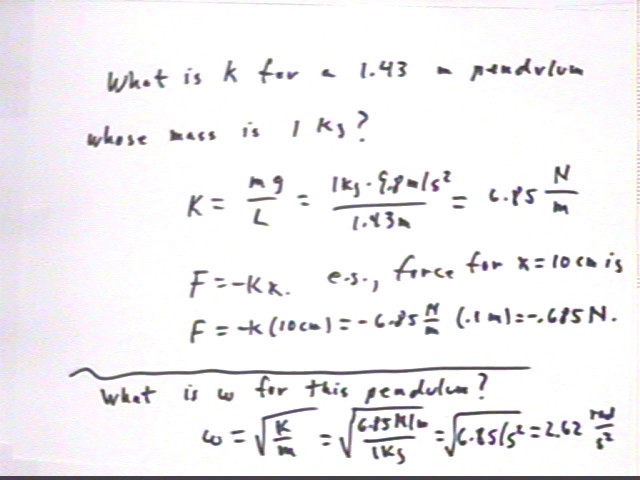 What is k for a 1.43 m pendulum
whose mass is 1 kg?
K = mg/L = 1kg·9.8m/s²/1.43m = 6.85 N/m
F = -Kx. e.g., force for x = 10 cm is
F = -k(10cm) = -6.85 N/m (.1m) = -.685N.
What is ω for this pendulum?
ω = √(K/m) = √(6.85N/m/1kg) = √(6.85/s²) = 2.62 rad/s²